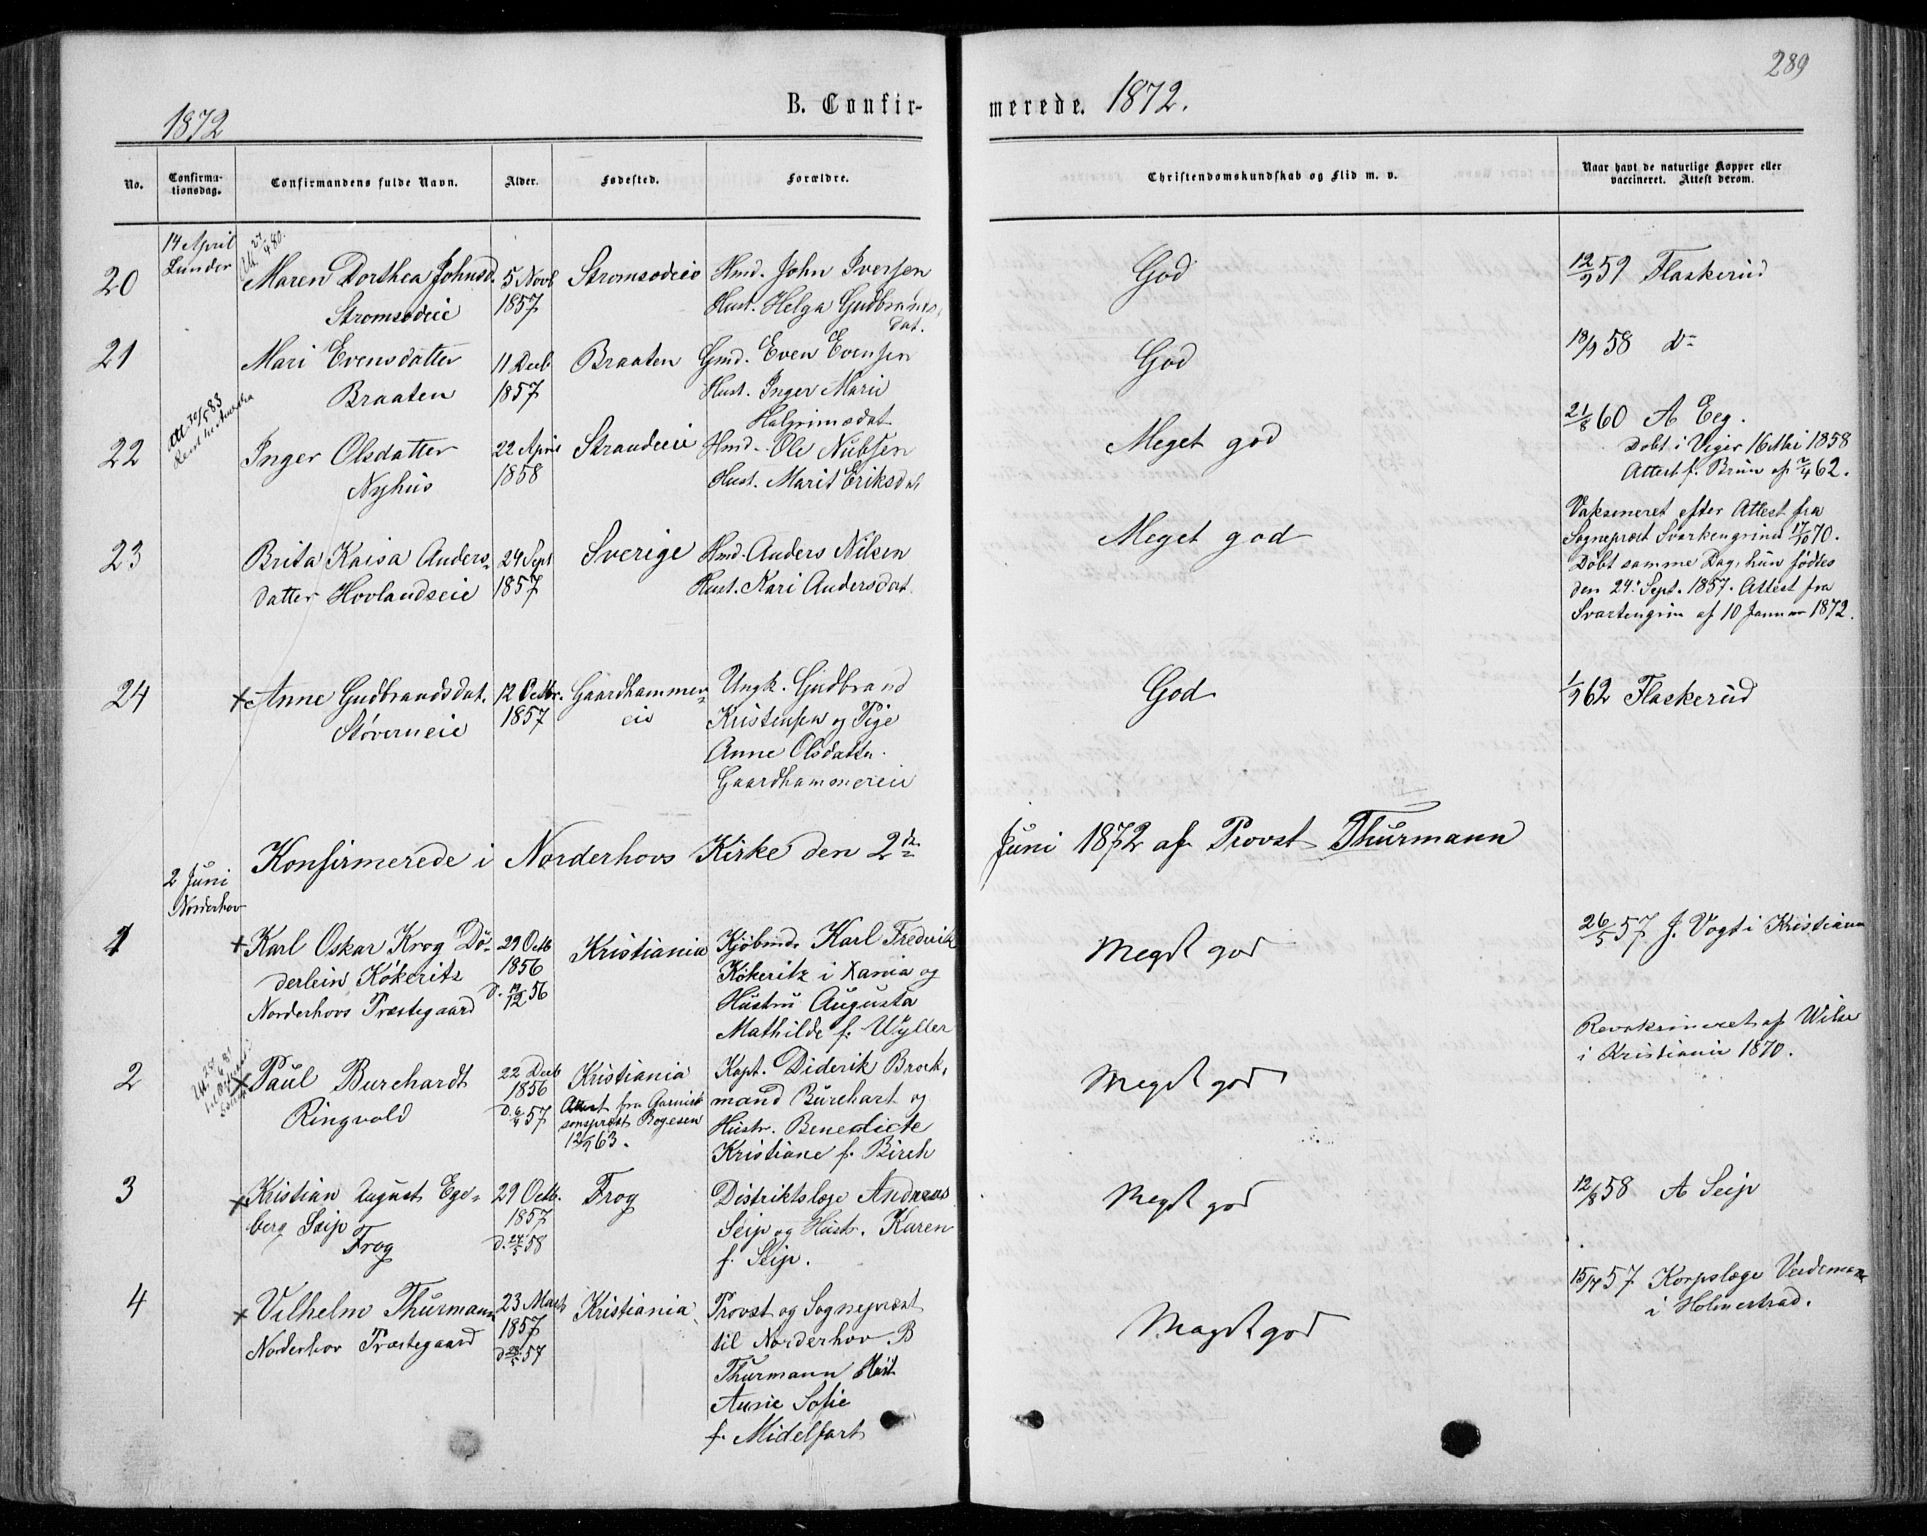 289
1872
B. Confir-
merede. 1872.
No.
Confirma-
tionsdag.
Confirmandens fulde Navn.
Alder.
Fødested.
Forældre.
Christendomskundskab og Flid m. v.
Naar havt de naturlige Kopper eller
vaccineret. Attest derom.
14 April
Lunder
20 Maren Dorthea Johnsd. 5 Novb Strømsødeie Hmd. John Iversen God 12/9 59 Flaskerud
Strømsødeie 1857 Hust. Helga Gudbrands
dat.
21 Mari Evensdatter 11 Decb Braaten Gmd. Even Evensen God 18/9 58 do
Braaten 1857 Hust. Inger Marie
Halgrimsdat
Att 30/5 83
22 Inger Olsdatter 22 April Strandeie Hmd. Ole Nubsen Meget god 21/8 60 A Eeg.
Nyhus 1858 Hust. Marit Eriksdat
Døbt i Viger 16 Mai 1858
Attest f. Bruun af 2/4 62.
23 Brita Kaisa Anders- 24 Sept Sverige Hmd. Anders Nilsen Meget god
datter Hovlandseie 1857 Hust. Kari Andersdat.
Vaksineret efter Attest fra
Sogneprest Svartengrind 17/10 70.
Døbt samme Dag, hun fødtes
den 24. Sept. 1857. Attest fra
Svartengrin af 10 Januar 1872.
24 + Anne Gudbrandsdat. 12 Octbr. Gaardhammer- Ungk. Gudbrand God 1/9 62 Flaskerud
Støverneie 1857 eie Kristensen og Pige
Anne Olsdatter
Gaardhammereie
Konfirmerede i Norderhovs Kirke den 2de Juni 1872 af Provst Thurmann
2 Juni
Norderhov
1 + Karl Oskar Krog Dø- 29 Octb Kristiania Kjøbmd. Karl Fredrik Meget god 26/5 57 J. Vogt i Kristiania
derlein Køkeritz 1856 Køkeritz i Xania og
Norderhovs Præstegaard d. 19/12 56 Hustru Augusta
Mathilde f. Wyller
2 + Paul Burchardt 22 Decb Kristiania Kapt. Diderik Brock- Meget god
Ringvold 1856 mand Burchart og
d. 6/4 57 Attest fra Garni-
sonsprest Bogesen Hustr. Benedicte
12/9 63. Kristiane f. Birch
Revaksineret af Wilse
i Kristiania 1870.
3 + Kristian August Ege- 29 Octb. Frog Distriktslæge Andreas Meget god 12/8 58 A Seip
berg Seip 1857 Seip og Hustr. Karen
Frog d. 24/5 58 f. Seip.
4 + Vilhelm Thurmann 23 Marts Kristiania Provst og Sogneprest Meget god 15/7 57 Korpslæge
Norderhov Præstegaard 1857 til Norderhov B i Holmestrad.
d 28/5 57 Thurmann Hust
Anne Sofie
f. Midelfart